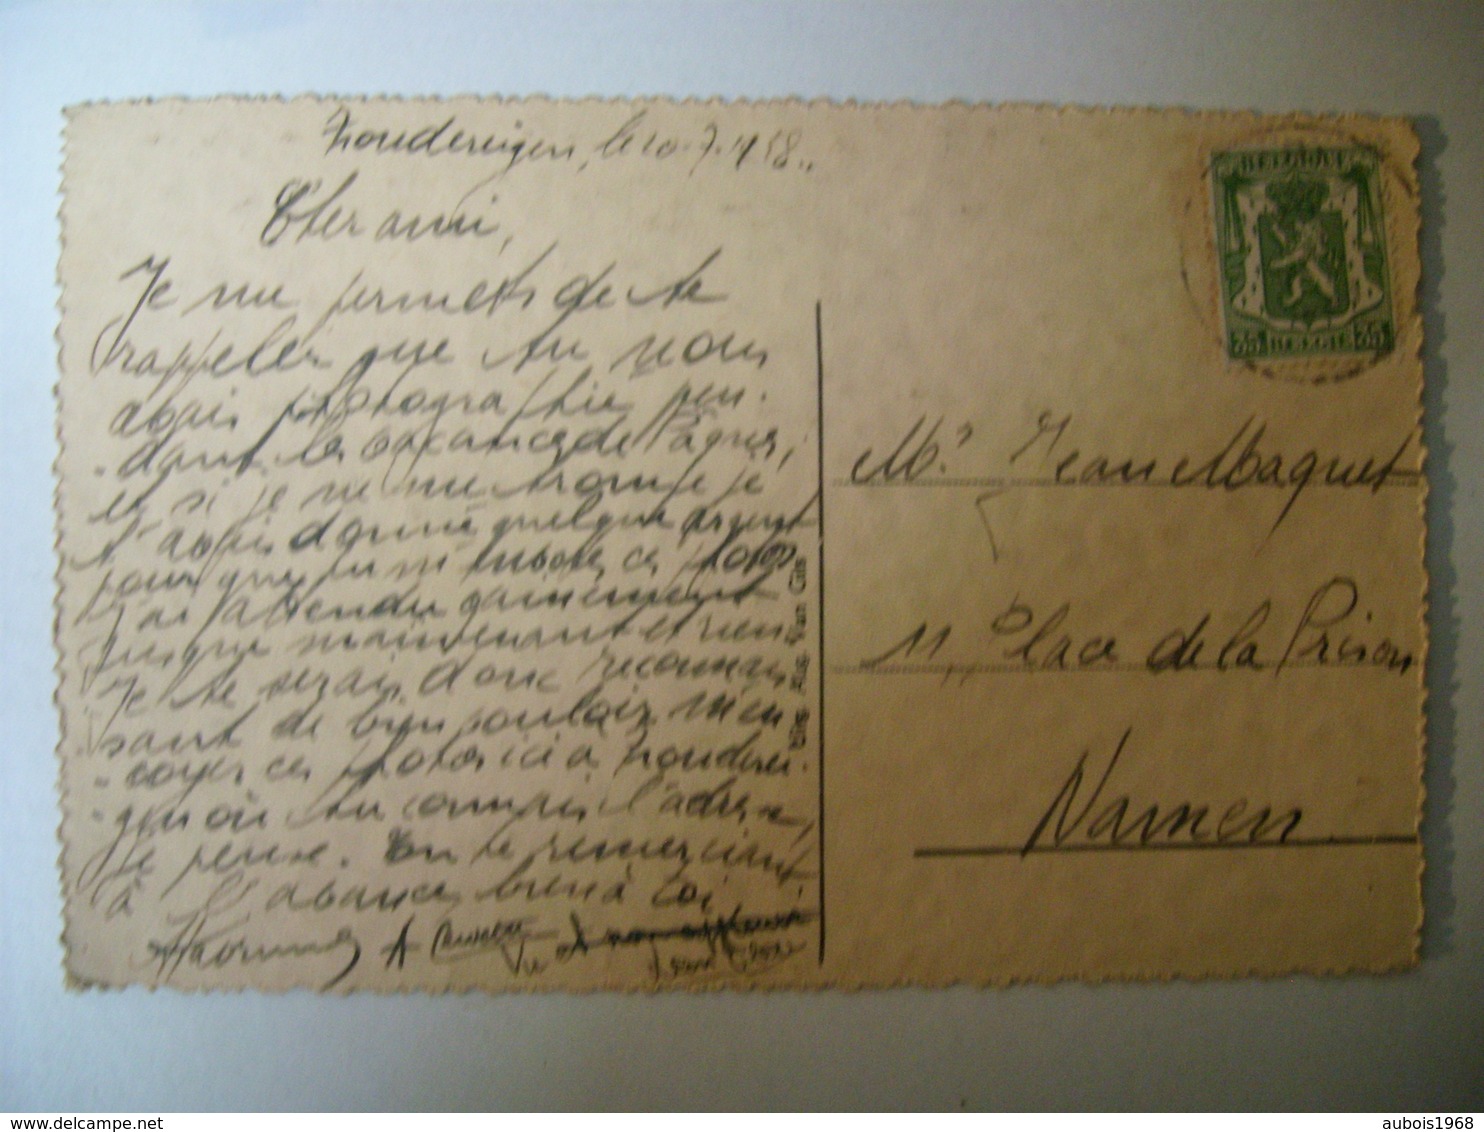 le 10-7-1938.
Cher ami,
Je me permets de te
rappeler que tu nous
avais photographié pen-
-dant les vacances de Pâques,
et si je ne me trompe je
t'avais donné quelque argent
pour que tu m'envoies ces photos
J'ai attendu
jusque maintenant et rien
Je te serais donc reconnais
sant de bien vouloir m'en
-voyer ces photos ici à Zouderei-
-gen où tu connais l'adresse,
je pense. En te remerciant
à l'avance, bien à toi
A
BELGIQUE
35 BELGIE 35
Mr. Jean Maquet
11 Place de la Prison
Namen
Uitg. Van Gils
aubois1968